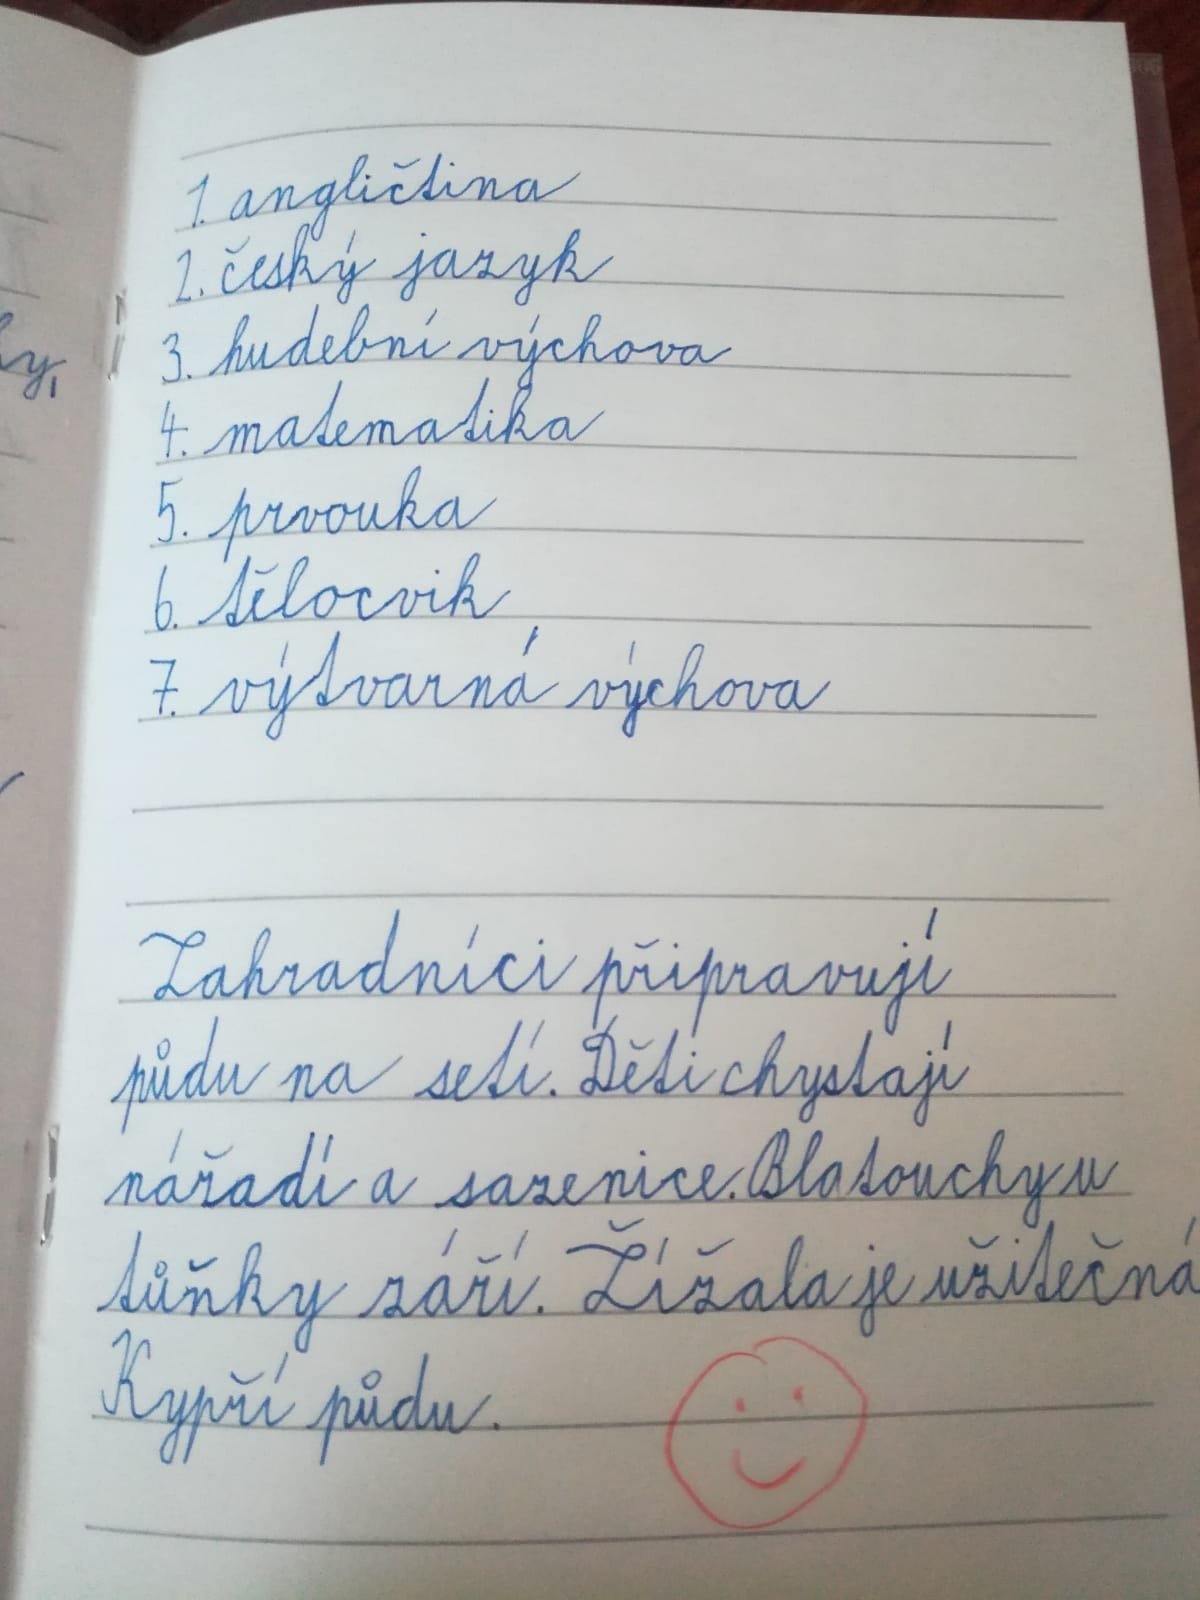 1. angličtina
2. český jazyk
3. hudební výchova
4. matematika
5. prvouka
6. tělocvik
7. výtvarná výchova
Zahradníci připravují
půdu na setí. Děti chystají
nářadí a sazenice. Blatouchy u
tůňky září. Žížala je užitečná
Kypří půdu.